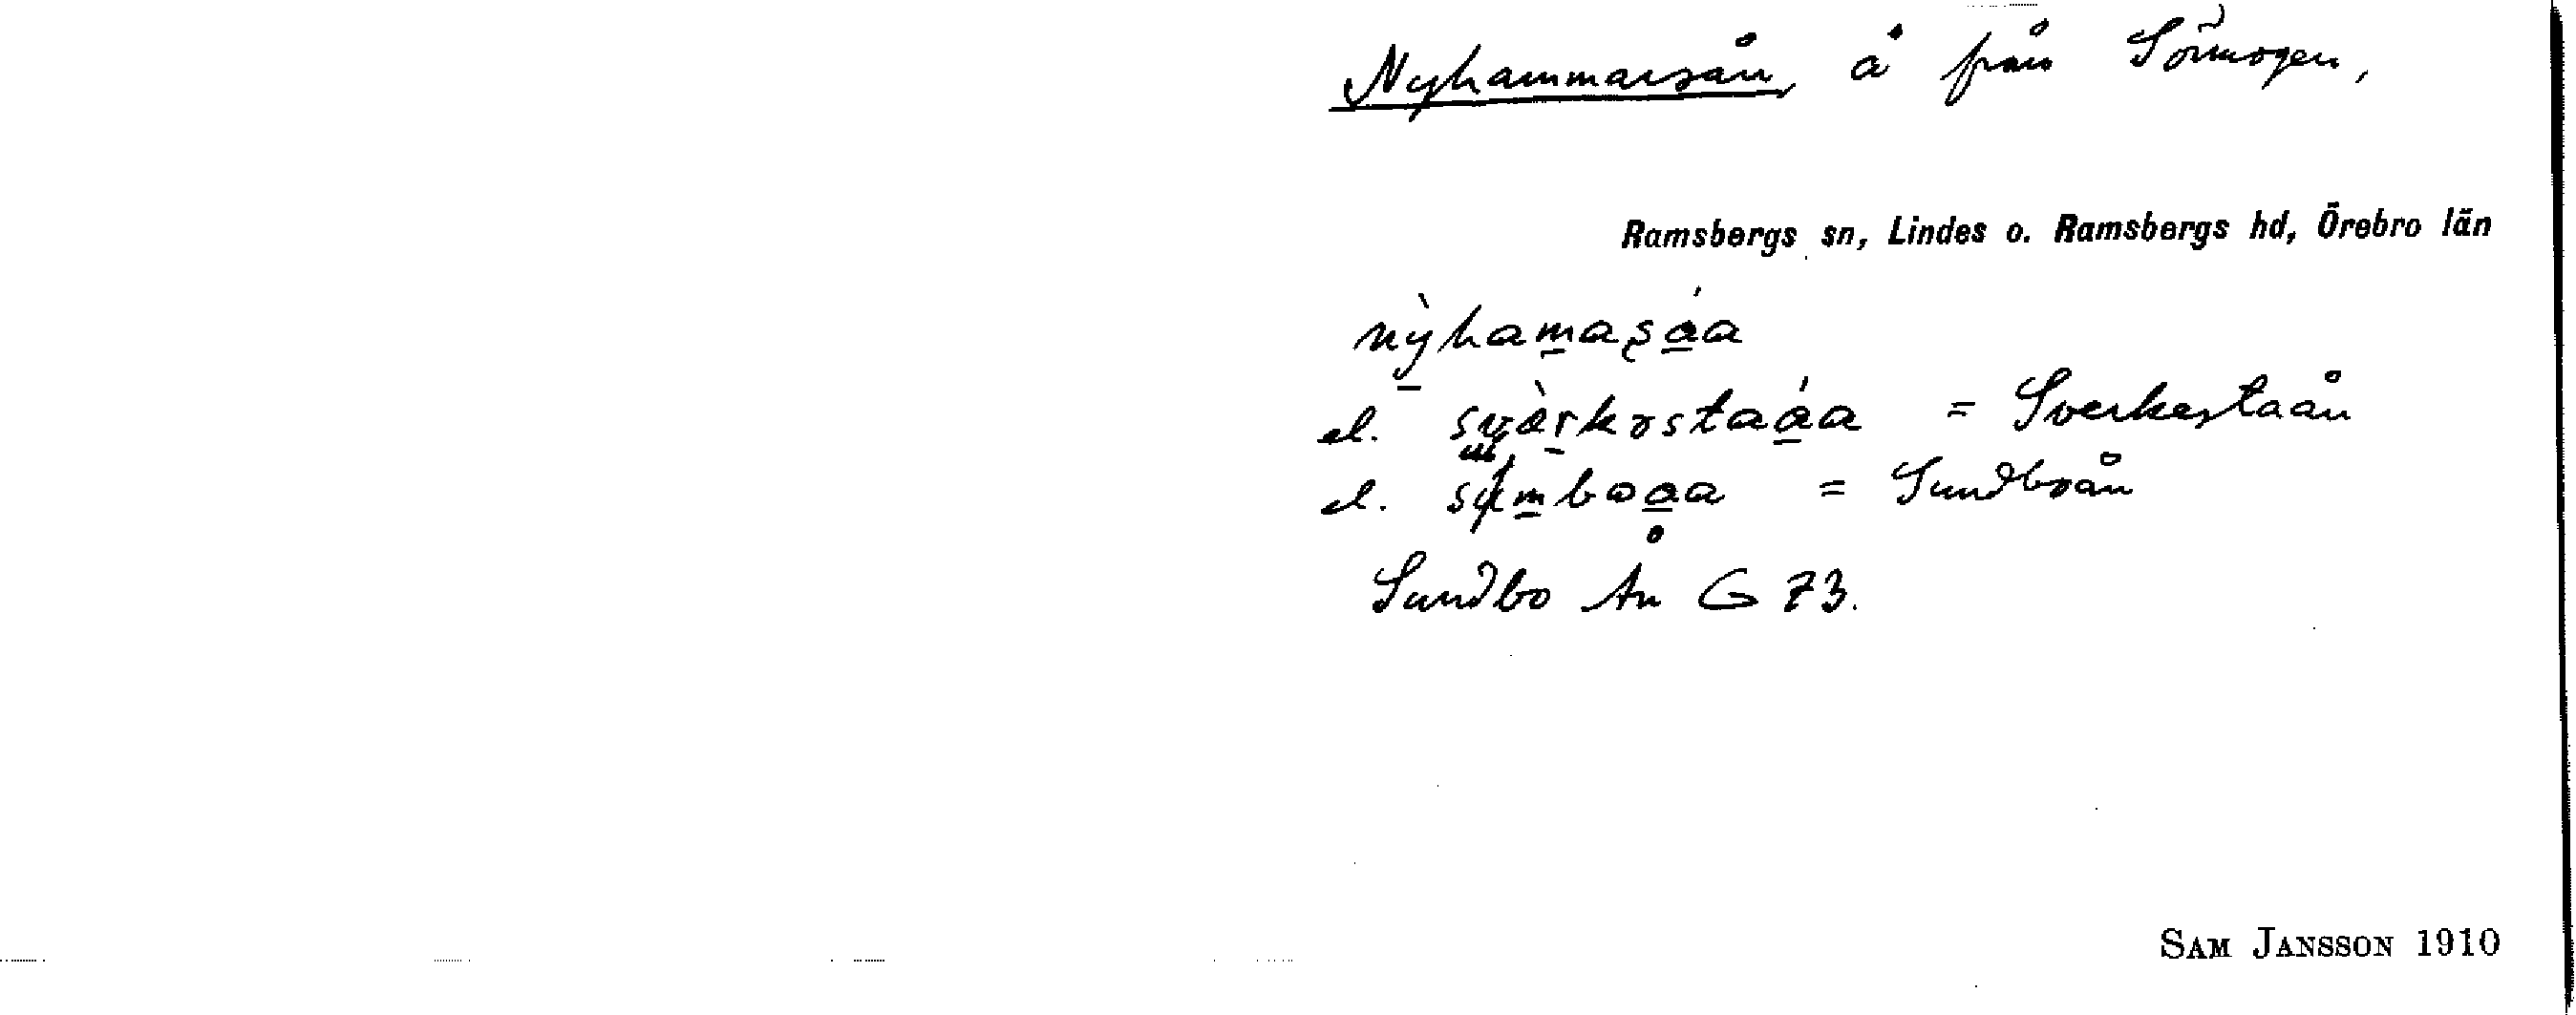 Nyhammarsån, å från Sörmogen,
Ramsbergs sn, Lindes o. Ramsbergs hd, Örebro län
nỳhamaʂáa
el. svæ̀rkɤstaáa = Sverkestaån
el. sumboaa = Sundboån
Sundbo Ån G 73.
SAM JANSSON 1910